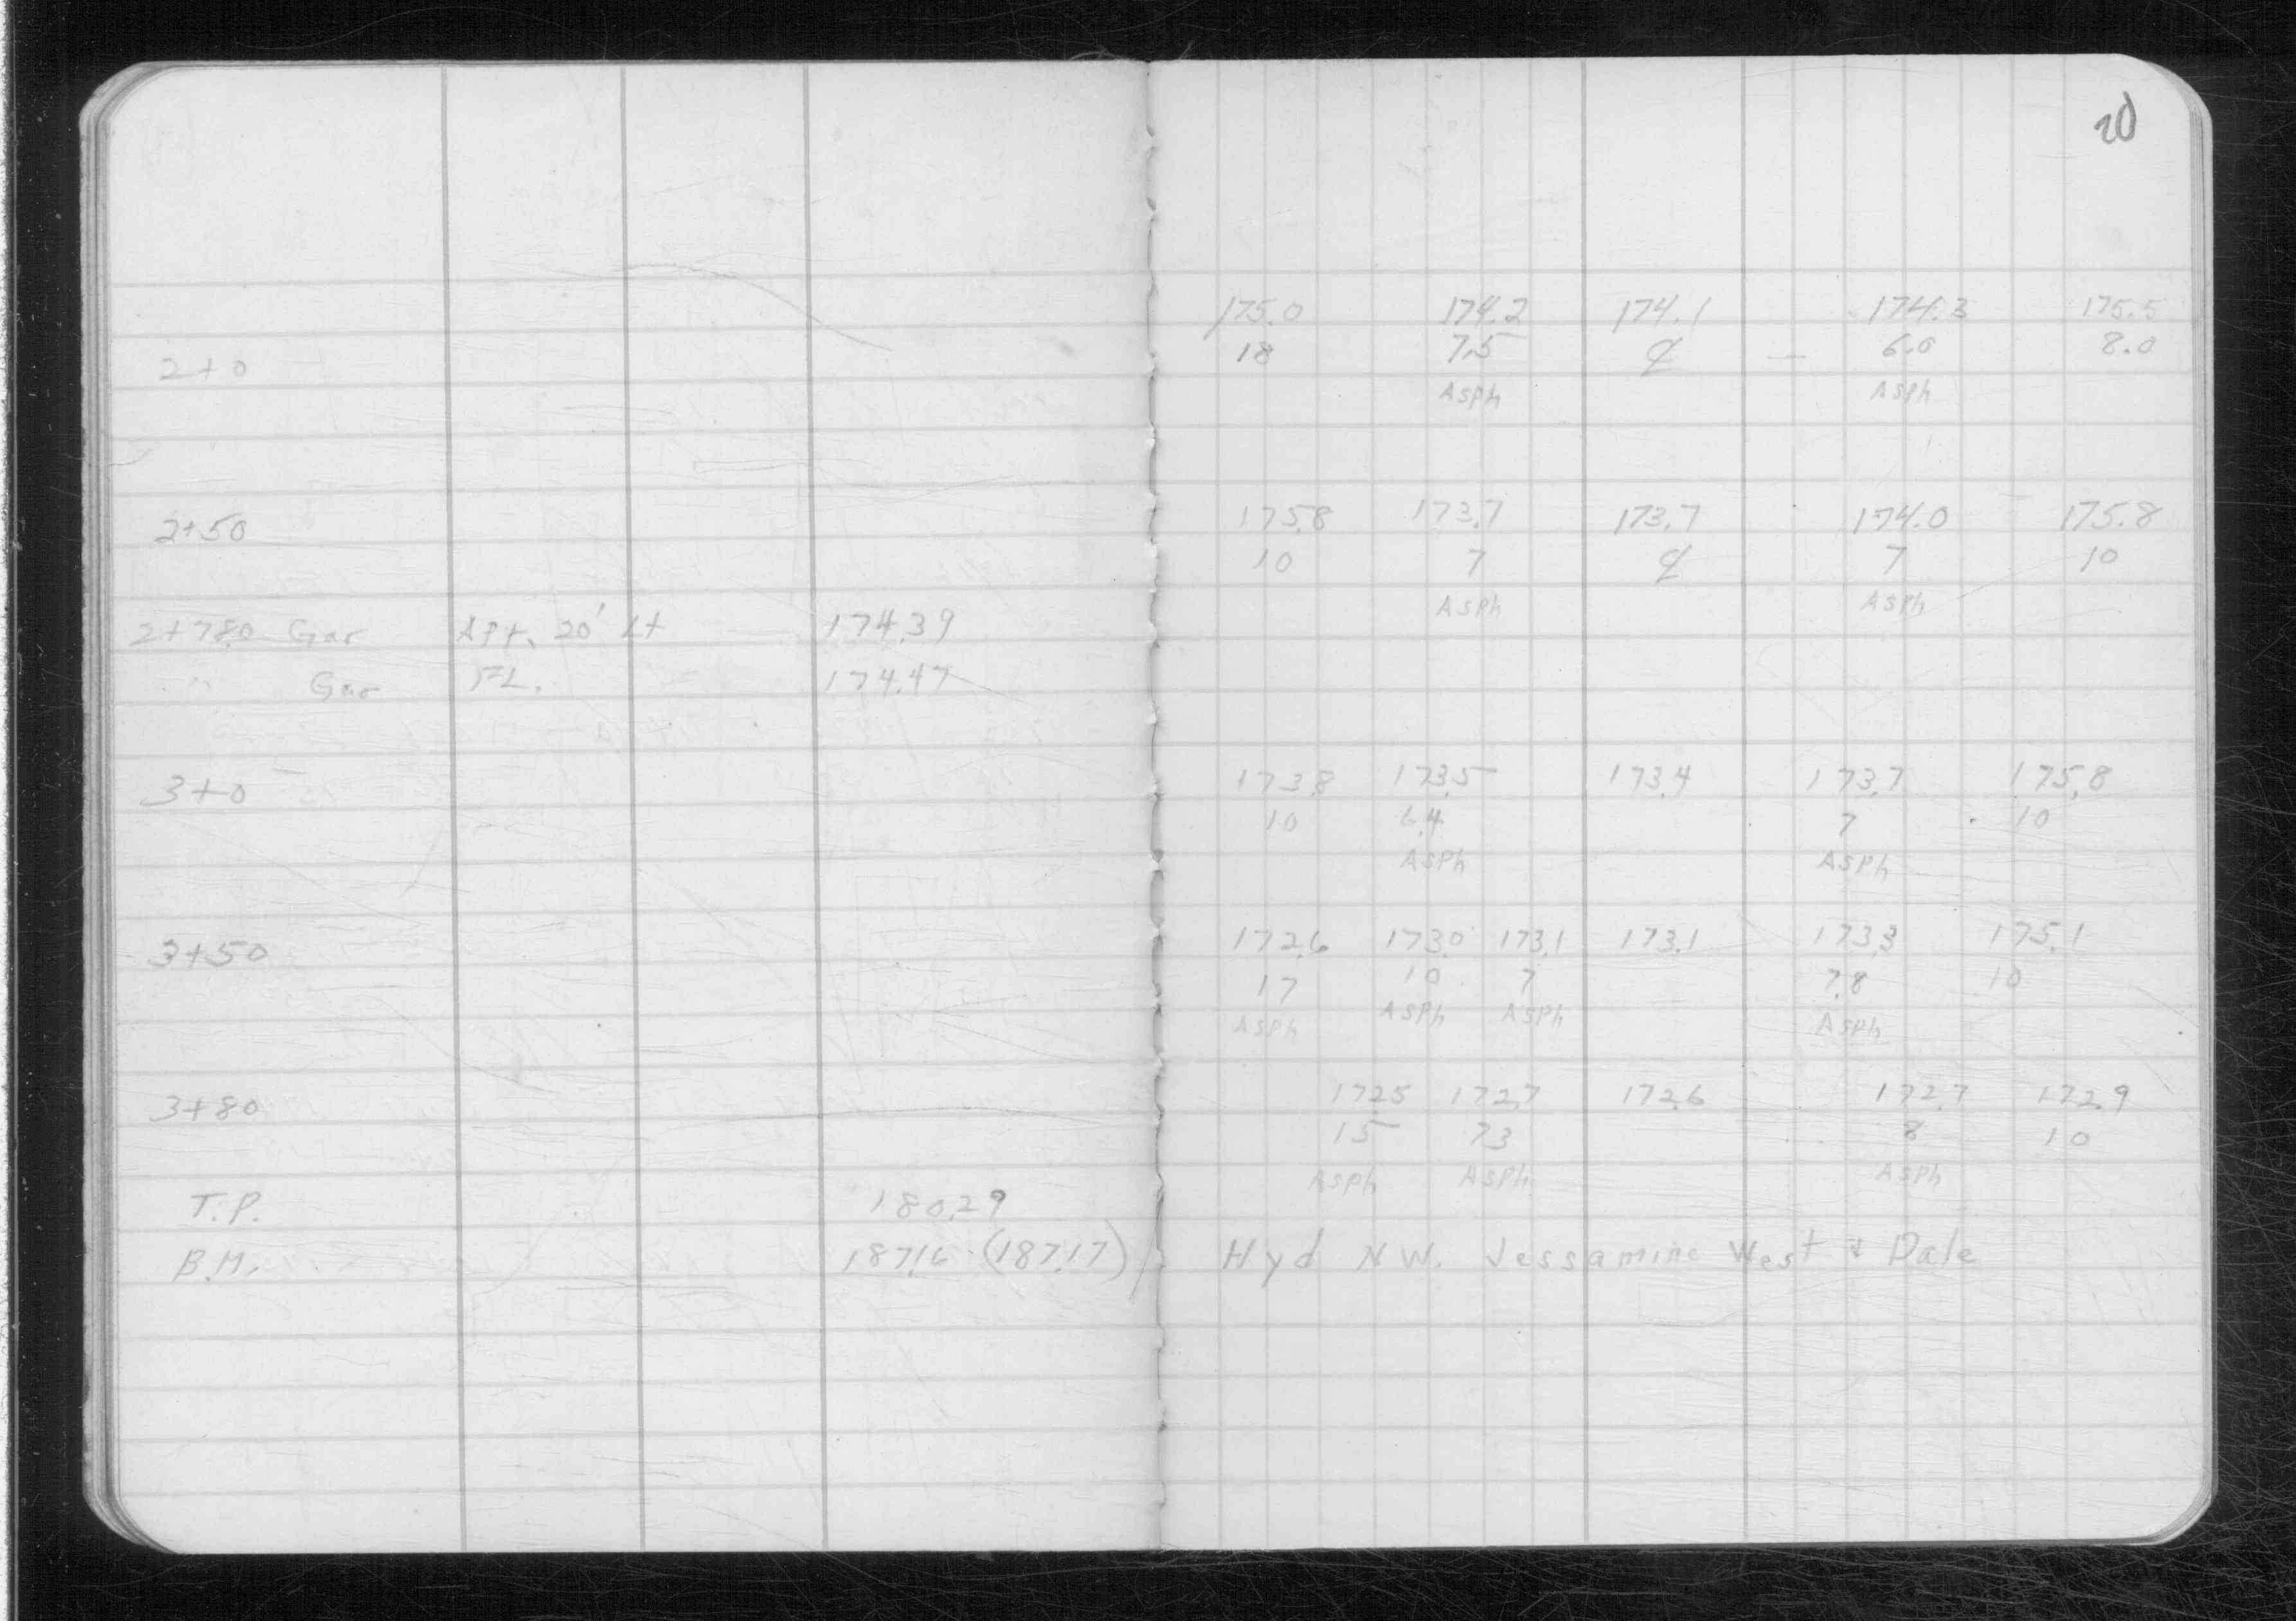 20
175.0 174.2 174.1 174.3 175.5
2+0 18 7.5 ℄ — 6.0 8.0
Asph Asph
2+50 175.8 173.7 173.7 174.0 175.8
10 7 ℄ 7 10
Asph Asph
2+78.0 Gar Apr. 20' Lt 174.39
" Gar FL. 174.47
3+0 173.8 173.5 173.4 173.7 175.8
10 6.4 7 10
Asph Asph
3+50 172.6 173.0 173.1 173.1 173.3 175.1
17 10 7 7.8 10
Asph Asph Asph Asph
3+80 172.5 172.7 172.6 172.7 172.9
15 7.3 8 10
Asph Asph Asph
T.P. 180.29
B.M. 187.16 (187.17) / Hyd N.W. Jessamine West & Dale